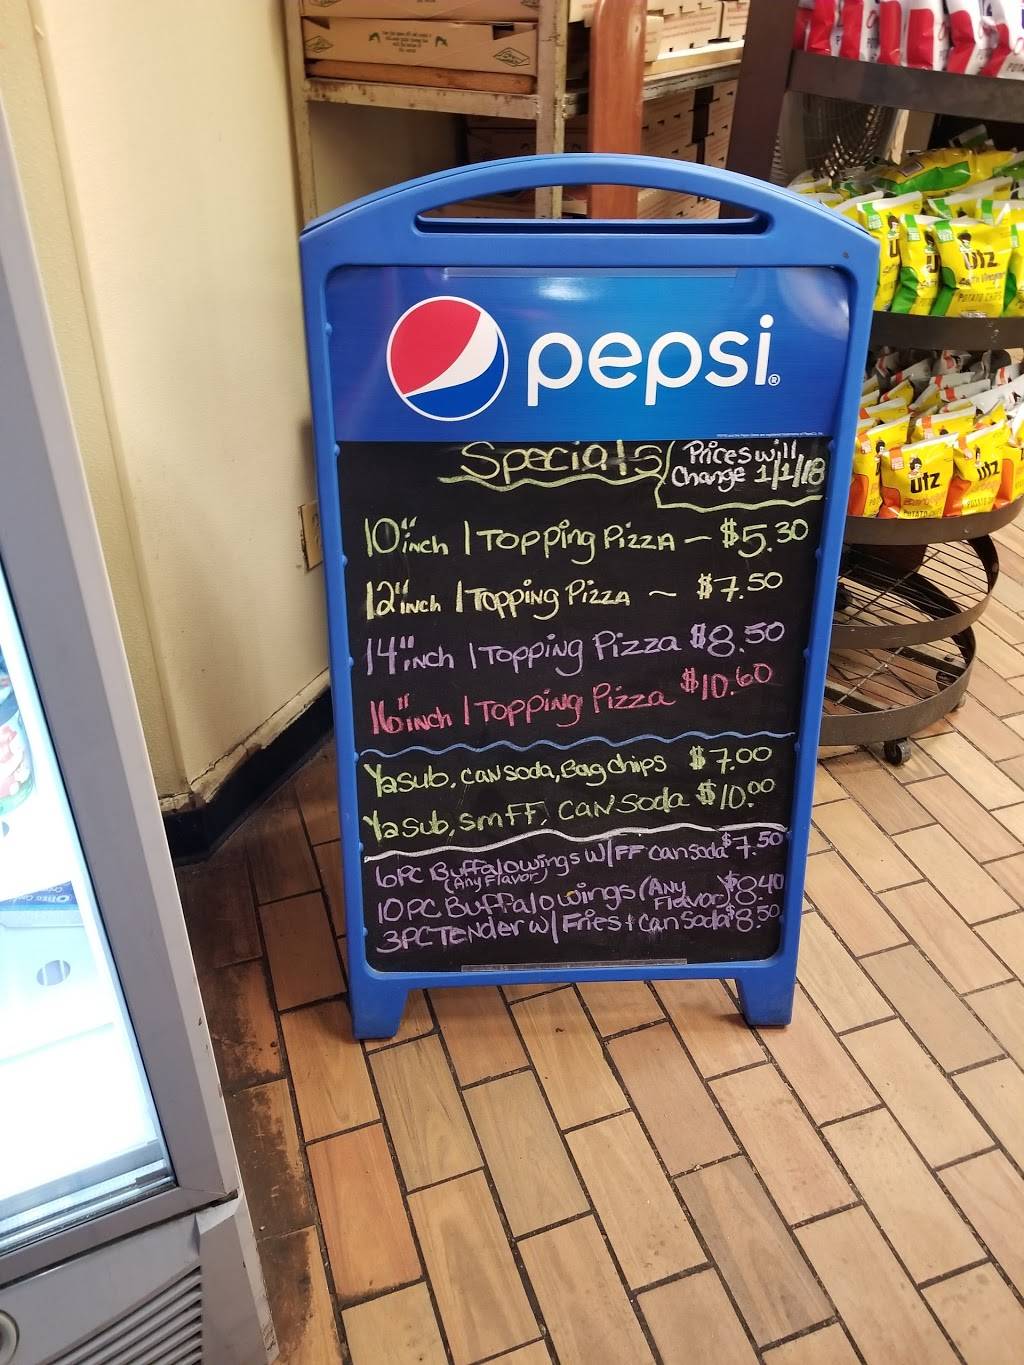 pepsi®
Specials
Prices will
Change 1/1/18
10" inch 1 Topping Pizza — $5.30
12" inch 1 Topping Pizza ~ $7.50
14" inch 1 Topping Pizza $8.50
16" inch 1 Topping Pizza $10.60
½ sub, can soda, Bag chips $7.00
½ sub, sm FF, can soda $10.00
6PC Buffalo wings w/FF can soda $7.50
(Any Flavor)
10PC Buffalo wings (Any Flavor) $8.40
3PC Tender w/ Fries + can soda $8.50
utz
utz
POTATO CHIPS
utz
utz